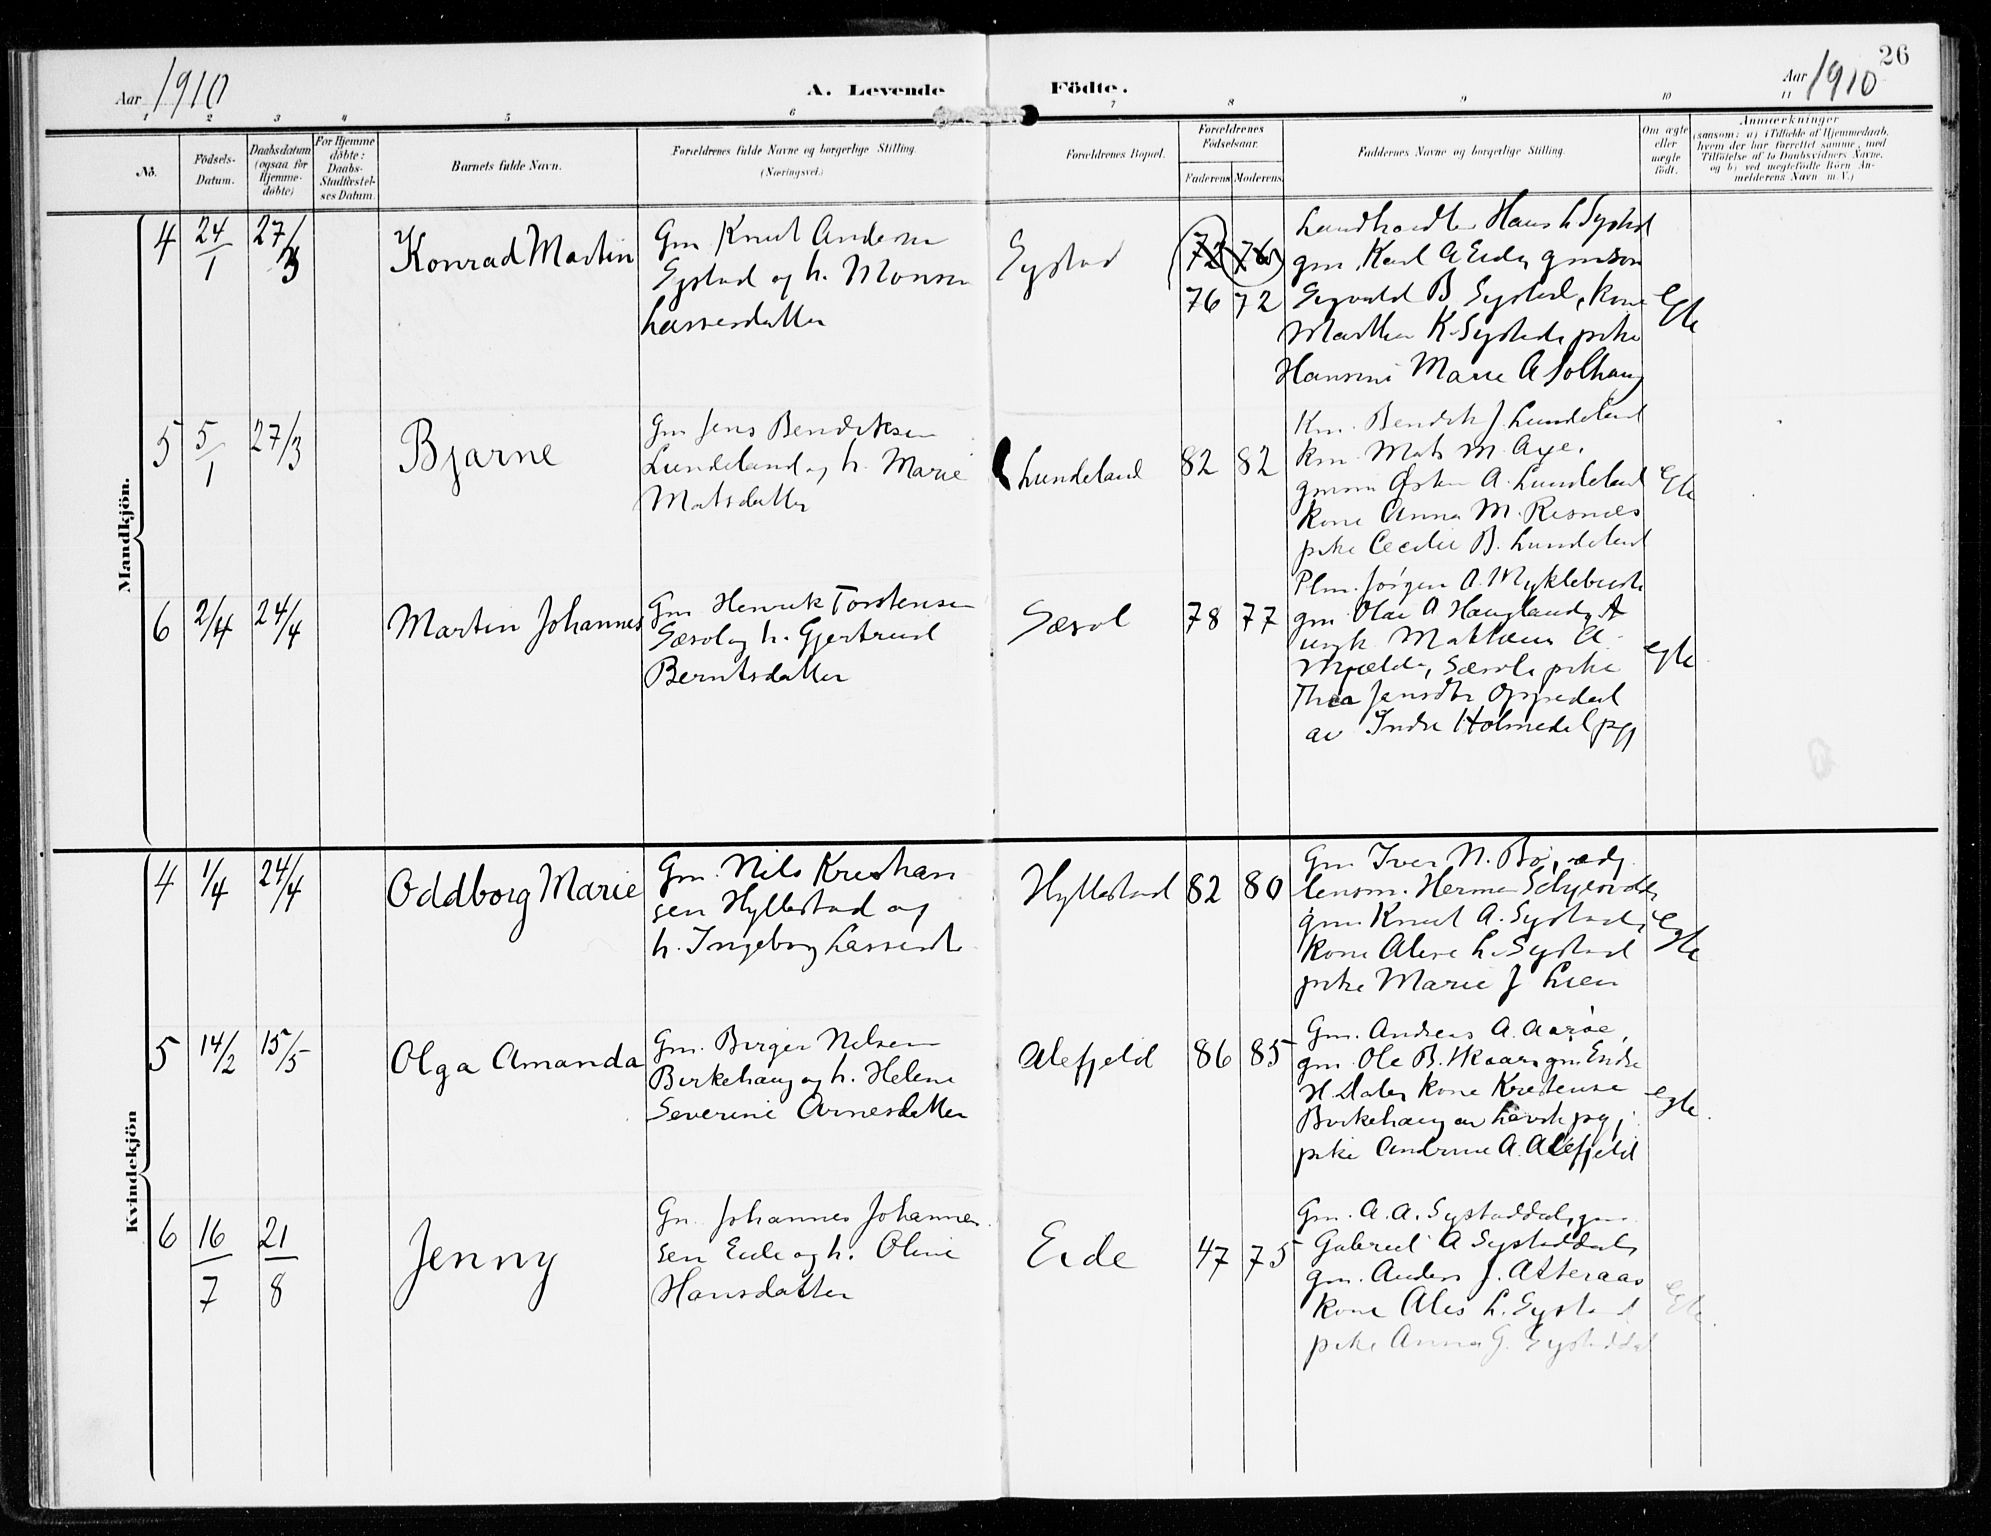 26
Aar 1910
A. Levende Födte.
Aar 1910
1 2 3 4 5 6 7 8 9 10 11
No.
Födsels-
Datum.
Daabsdatum
(ogsaa for
Hjemme-
döbte)
For Hjemme
döbte:
Daabs-
Stadfæstel-
ses Datum.
Barnets fulde Navn.
Forældrenes fulde Navne og borgerlige Stilling.
(Næringsvei.)
Forældrenes Bopæl.
Forældrenes
Födselsaar.
Faderens Moderens
Faddernes Navne og borgerlige Stilling.
Om ægte
eller
uægte
födt.
Anmærkninger
(saasom: a) i Tilfælde af Hjemmedaab,
hvem der har forrettet samme, med
Tilföielse af to Daabsvidners Navne,
og b) ved uegtefödte Börn An-
melderens Navn m. V.)
Mandkjön.
4 24/1 27/3 Konrad Martin
Gm Knut Andersen
Systad og h. Monsine
Lassesdatter
Systad
72 76
76 72
Landhandler Hans L Systad
gm. Karl A Eide, gmsøn
Sigvald B. Systad, kone
Marthe K. Systad, pike
Hansine Marie A Solhaug
Egte
5 5/1 27/3 Bjarne
Gm Jens Bendiksen
Lundeland og h. Marie
Matsdatter
Lundeland
82 82
Km. Bendik J. Lundeland
km. Mats M. Axe,
gmsøn Østen A. Lundeland
kone Anna M. Risnæs
pike Cecilie B. Lundeland
Egte
6 2/4 24/4 Martin Johannes
Gm Henrik Torstensen
Sæsol og h. Gjertrud
Berntsdatter
Sæsol
78 77
Plm. Jørgen A. Myklebust
gm. Olai A Haugland,
ungk. Mathæus A.
Mjelde, Sæsol, pike
Thea Jensdtr Opsedal
av Indre Holmedal pgj
egte
Kvindekjön
4 1/4 24/4 Oddborg Marie
Gm. Nils Kristian
sen Hyllestad og
h. Ingeborg Lassesdtr
Hyllestad
82 80
Gm. Iver N. Bø,
lensm. Herman
gm. Knut A. Systad,
kone Aline L. Systad
pike Marie J Lien
Egte
5 14/2 15/5 Olga Amanda
Gm. Birger Nilsen
Birkehaug og h. Helene
Severine Arnesdatter
Alefjeld
86 85
Gm. Andreas A. Aarøe,
gm. Ole B. Skaar, gm. Endre
H. Dale, kone Kristense
Birkehaug av Lavik pgj,
pike Andrine A. Alefjeld
egte.
6 16/7 21/8 Jenny
Gm. Johannes Johannes
sen Eide og h. Oline
Hansdatter
Eide
47 75
Gm. A. A. Systaddal, gm
Gabriel A Systaddal,
gm. Anders J. Atteraas
kone Ales L. Systad
pike Anna G. Systaddal
Egte.